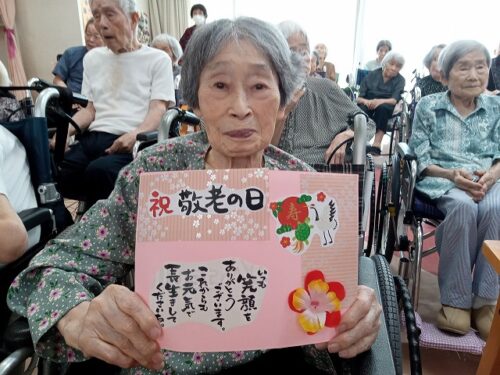 祝 敬老の日
寿
いつも
笑顔を
ありがとう
ございます。
これからも
お元気で
長生きして
くださいね